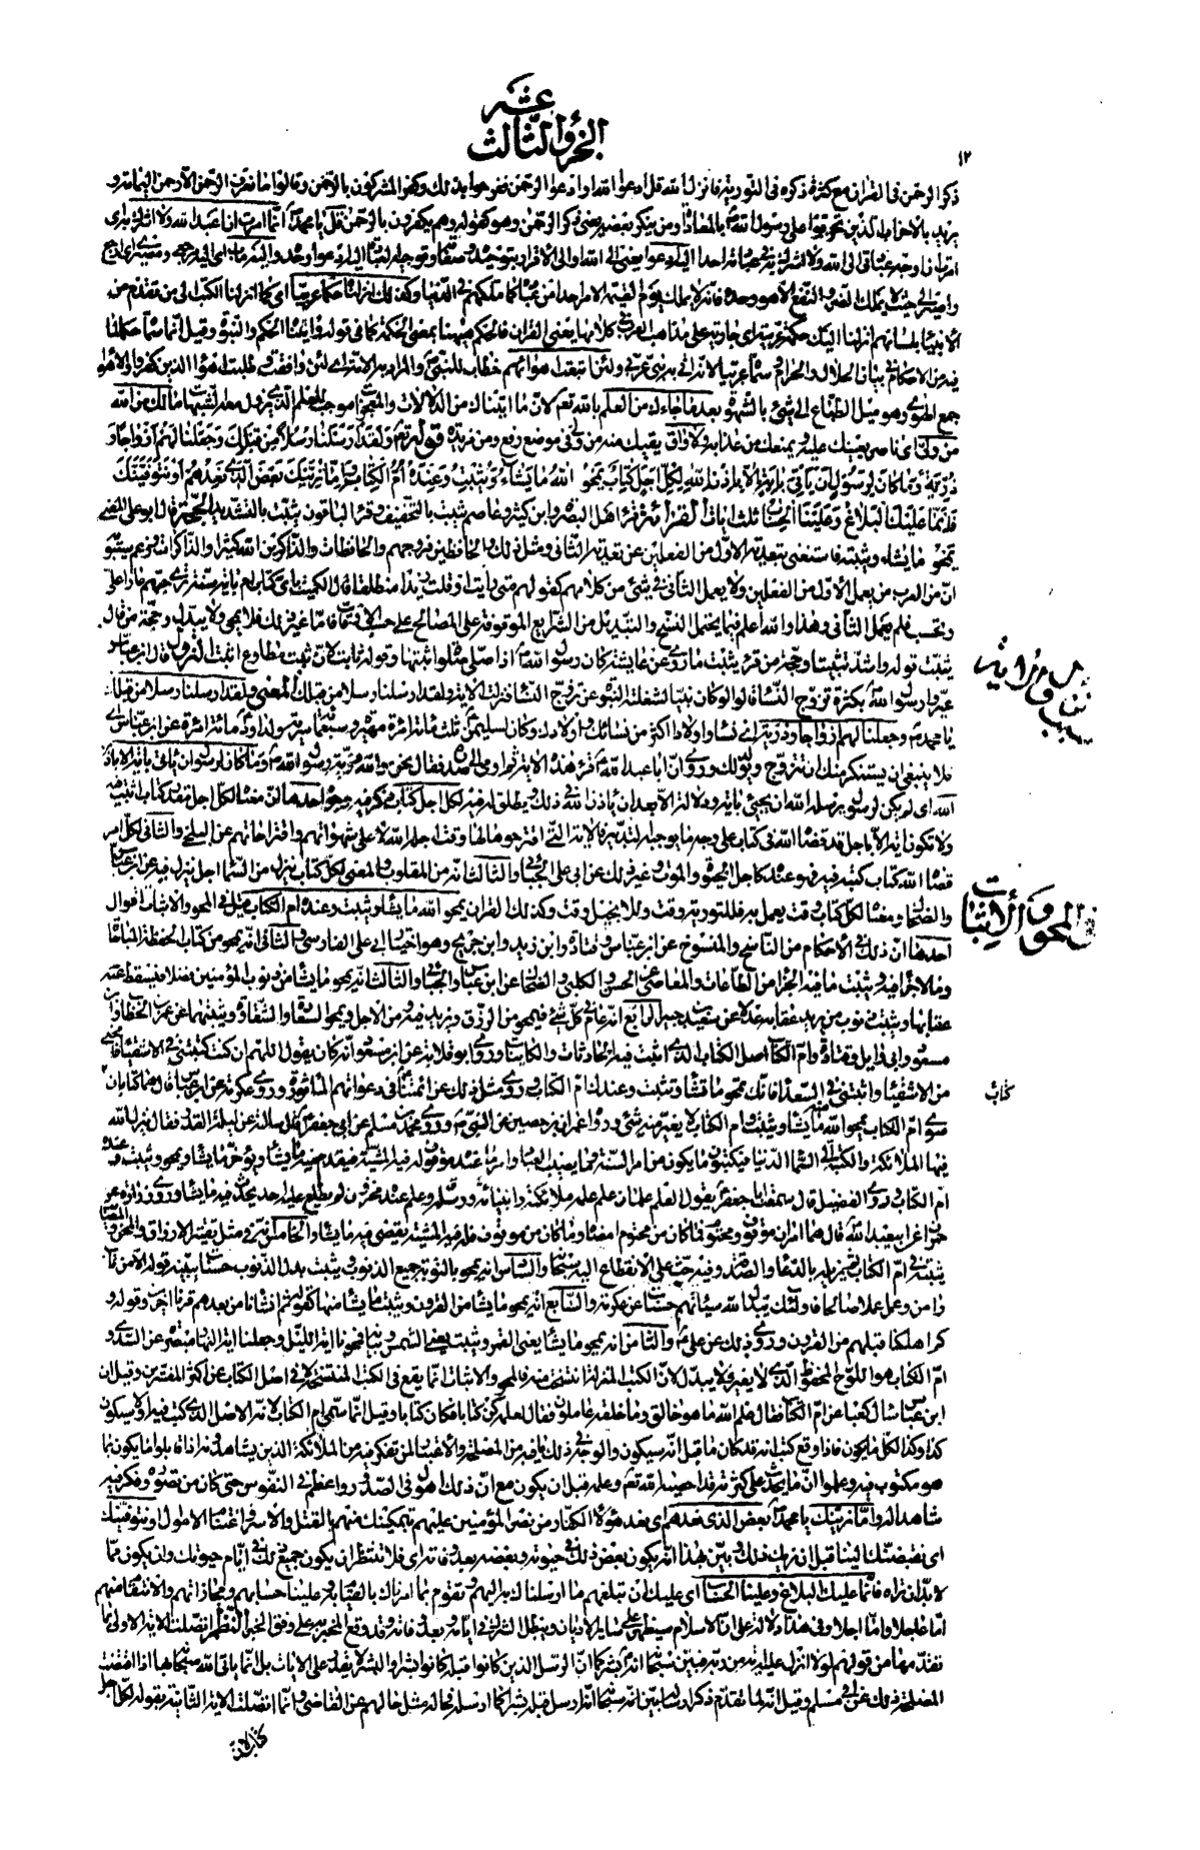 الجزو الثالث عشر
١٢
ذكر الرحمن فى القران مع كثرة ذكره فى التورية فانزل الله قل ادعوا الله او ادعوا الرحمن ففرحوا بذلك وكفر المشركون بالرحمن وقالوا ما نعرف الرحمن الا رحمن اليمامة و
يريد بالاحزاب الذين تحزبوا على رسول الله بالمعاداة ومن ينكر بعضه يعنى ذكر الرحمن وهو كقوله وهم يكفرون بالرحمن قل يا محمد انما امرت ان اعبد الله ولا اشرك به اى
امرت ان اوجه عبادتى الى الله ولا اشرك به فى عبادته احدا اليه ادعوا يعنى الى الله او الى الاقرار بتوحيده وصفاته وتوجيه العبادة اليه ادعوا وحده واليه ماب اى اليه مرجعى ومصيرى اى ارجع
واصير الى حيث لا يملك الضر والنفع الا هو وحده فانه لا يملك يوم القيمة الامر احدا من عباده كما ملكهم فى الدنيا وكذلك انزلناه حكما عربيا اى كما انزلنا الكتب الى من تقدم من
الانبياء بلسانهم انزلنا اليك حكمة عربية اى جارية على مذاهب العرب فى كلامها يعنى القران فالحكم ههنا بمعنى الحكمة كما فى قوله واتيناه الحكم والنبوة وقيل انما سماه حكما لما
فيه من الاحكام فى بيان الحلال والحرام وسماه عربيا لانه اتى به نبى عربى ولئن اتبعت اهواءهم خطاب للنبى والمراد به الامة اى لئن وافقت وطلبت اهواء الذين كفروا والاهواء
جمع الهوى وهو ميل الطباع الى شىء بالشهوة بعد ما جاءك من العلم بالله تعم لان ما اتيناك من الدلالات والمعجزات موجب للعلم الذى يزول معه الشبهات مالك من الله
من ولى اى ناصر يعينك عليه ويمنعك من عذابه ولا واق يقيك منه من ولى فى موضع رفع ومن مزيدة قوله تعم ولقد ارسلنا رسلا من قبلك وجعلنا لهم ازواجا و
ذرية وما كان لرسول ان ياتى باية الا باذن الله لكل اجل كتاب يمحو الله ما يشاء ويثبت وعنده ام الكتاب واما نرينك بعض الذى نعدهم او نتوفينك
فانما عليك البلاغ وعلينا الحساب ثلث ايات القراءة قرا اهل البصرة وابن كثير وعاصم ويثبت بالتخفيف وقرا الباقون يثبت بالتشديد الحجة قال ابو على المعنى
يمحو ما يشاء ويثبته فاستغنى بتعدية الاول من الفعلين عن تعدية الثانى ومثل ذلك والحافظين فروجهم والحافظات والذاكرين الله كثيرا والذاكرات وزعم سيبويه
ان من العرب من يعمل الاول من الفعلين ولا يعمل الثانى فى شىء من كلامهم كقولهم متى رايت او قلت زيدا منطلقا قال الكميت باى كتاب ام باية سنة ترى حبهم عارا على
وتحسب فلم يعمل الثانى وهذا والله اعلم فيما يحتمل النسخ والتبديل من الشرايع الموقوفة على المصالح على حسب الاوقات فاما غير ذلك فلا يمحى ولا يبدل وحجة من قال
يثبت قوله واشد تثبيتا وحجة من قرء يثبت ما روى عن عايشة كان رسول الله اذا صلى صلوة اثبتها وقوله ثابت لان ثبت مطاوع اثبت النزول قال ابن عباس
عيروا رسول الله بكثرة تزوج النساء قالوا لو كان نبيا لشغلته النبوة عن تزوج النساء فنزلت الاية ولقد ارسلنا رسلا من قبلك المعنى ولقد ارسلنا رسلا من قبلك
يا محمد وجعلنا لهم ازواجا وذرية اى نساء واولادا اكثر من نسائك واولادك وكان لسليمان ثلث مائة امراة مهيرة وسبعمائة سرية ولداود مائة امراة عن ابن عباس اى
فلا ينبغى ان يستنكر منك ان تتزوج ويولد لك وروى ان ابا عبد الله قرء هذه الاية ثم اومى الى صدره فقال نحن والله ذرية رسول الله وما كان لرسول ان ياتى باية الا باذن
الله اى لم يكن لرسول يرسله الله ان يجىء باية ودلالة الا بعد ان ياذن الله فى ذلك ويطلق له فيه لكل اجل كتاب ذكر فيه وجوه احدها ان معناه لكل اجل مقدر كتاب اثبت فيه
ولا تكون اية الا باجل قد قضاه الله فى كتاب على وجه ما يوجبه التدبير فالاية التى اقترحوها لها وقت اجله الله لا على شهواتهم واقتراحاتهم عن البلخى والثانى لكل امر
قضاه الله كتاب كتبه فيه فهو عنده كاجل الحيوة والموت وغير ذلك عن ابى على الجبائى والثالث انه من المقلوب والمعنى لكل كتاب ينزل من السماء اجل ينزل فيه عن ابن عباس
والضحاك ومعناه لكل كتاب وقت يعمل به فللتورية وقت وللانجيل وقت وكذلك القران يمحو الله ما يشاء ويثبت وعنده ام الكتاب قيل فى المحو والاثبات اقوال
احدها ان ذلك فى الاحكام من الناسخ والمنسوخ عن ابن عباس وقتادة وابن زيد وابن جريج وهو اختيار ابى على الفارسى والثانى انه يمحو من كتاب الحفظة المباحات
وما لا جزاء فيه ويثبت ما فيه الجزاء من الطاعات والمعاصى عن الحسن والكلبى والضحاك عن ابن عباس والجبائى والثالث انه يمحو ما يشاء من ذنوب المؤمنين فضلا فيسقط عقابها
ويثبت ذنوب من يريد عقابه عدلا عن سعيد بن جبير الرابع انه عام فى كل شىء فيمحو من الرزق ويزيد فيه ومن الاجل ويمحو السعادة والشقاوة ويثبتهما عن عمر بن الخطاب وابن
مسعود وابى وايل وقتادة وام الكتاب اصل الكتاب الذى اثبت فيه الحادثات والكاينات وروى ابو قلابة عن ابن مسعود انه كان يقول اللهم ان كنت كتبتنى فى الاشقياء فامحنى
من الاشقياء واثبتنى فى السعداء فانك تمحو ما تشاء وتثبت وعندك ام الكتاب وروى مثل ذلك عن ائمتنا فى دعواتهم الماثورة وروى عكرمة عن ابن عباس قال هما كتابان
سوى ام الكتاب يمحو الله منه ما يشاء ويثبت وام الكتاب لا يغير منه شىء ورواه عمران بن حصين عن النبى وروى محمد بن مسلم عن ابى جعفر قال سالته عن ليلة القدر فقال ينزل الله
فيها الملائكة والكتبة الى السماء الدنيا فيكتبون ما يكون من امر السنة وما يصيب العباد وامر عنده موقوف له فيه المشية فيقدم منه ما يشاء ويؤخر ما يشاء ويمحو ويثبت وعنده
ام الكتاب وروى الفضيل قال سمعت ابا جعفر يقول العلم علمان علم علمه ملائكته وانبيائه ورسله وعلم عنده مخزون لم يطلع عليه احد يحدث فيه ما يشاء وروى زرارة عن
حمران عن ابى عبد الله قال هما امران موقوف ومحتوم فما كان من محتوم امضاه وما كان من موقوف فله فيه المشية يقضى فيه ما يشاء والخامس انه فى مثل تقتير الارزاق والمحن والمصائب
يثبته فى ام الكتاب ثم يزيله بالدعاء والصدقة وفيه حث على الانقطاع اليه سبحانه والسادس انه يمحو بالتوبة جميع الذنوب ويثبت بدل الذنوب حسنات يبينه قوله الا من تاب
وامن وعمل عملا صالحا فاولئك يبدل الله سيئاتهم حسنات عن عكرمة والسابع انه يمحو ما يشاء من القرون ويثبت ما يشاء منها كقوله ثم انشانا من بعدهم قرنا اخرين وقوله و
كم اهلكنا قبلهم من القرون وروى ذلك عن على والثامن انه يمحو ما يشاء يعنى القمر ويثبت يعنى الشمس وبيانه فمحونا اية الليل وجعلنا اية النهار مبصرة عن السدى و
ام الكتاب هو اللوح المحفوظ الذى لا يغير ولا يبدل لان الكتب المنزلة انتسخت منه فالمحو والاثبات انما يقع فى الكتب المنتسخة لا فى اصل الكتاب عن اكثر المفسرين وقيل ان
ابن عباس سال كعبا عن ام الكتاب فقال علم الله ما هو خالق وما خلقه عاملون فقال لعلمه كن كتابا فكان كتابا وقيل انما سمى ام الكتاب لانه الاصل الذى كتب فيه اولا سيكون
كذا وكذا لكل ما يكون فاذا وقع كتب انه قد كان ما قيل انه سيكون والوجه فى ذلك ما فيه من المصلحة والاعتبار لمن تفكر فيه من الملائكة الذين يشاهدونه اذا قابلوا ما يكون بما
هو مكتوب فيه وعلموا ان ما يحدث على كثرته قد احصاه الله تعم وعلمه قبل ان يكون مع ان ذلك اهول فى الصدور واعظم فى النفوس حتى كان من تصوره وفكر فيه
مشاهد له واما نرينك يا محمد بعض الذى نعدهم اى نعد هؤلاء الكفار من نصر المؤمنين عليهم بتمكينك منهم بالقتل والاسر واغتنام الاموال او نتوفينك
اى نقبضنك الينا قبل ان نريك ذلك وبين بهذا انه يكون بعض ذلك فى حيوته وبعضه بعد وفاته اى فلا تنتظر ان يكون جميع ذلك فى ايام حيوتك وان يكون مما
لا بد ان تراه فانما عليك البلاغ وعلينا الحساب اى عليك ان تبلغهم ما ارسلناك به اليهم وتقوم بما امرناك بالقيام به وعلينا حسابهم ومجازاتهم والانتقام منهم
اما عاجلا واما اجلا وفى هذا دلالة على ان الاسلام سيظهر على ساير الاديان ويبطل الشرك فى ايامه وبعد وفاته وقد وقع المخبر به على وفق الخبر النظم اتصلت الاية الاولى بما
تقدمها من قولهم لولا انزل عليه اية من ربه فبين سبحانه انه بشر كما ان الرسل الذين كانوا قبله كانوا بشرا والبشر لا يقدر على الايات بل انما ياتى الله سبحانه بها اذا اقتضت
المصلحة ذلك عن ابى مسلم وقيل انه لما تقدم ذكر ارساله بين انه سبحانه ارسل قبله بشرا كما ارسله فحاله مثل حالهم عن القاضى وانما اتصلت الاية الثانية بقوله لكل اجل
كتاب لانه
كتاب